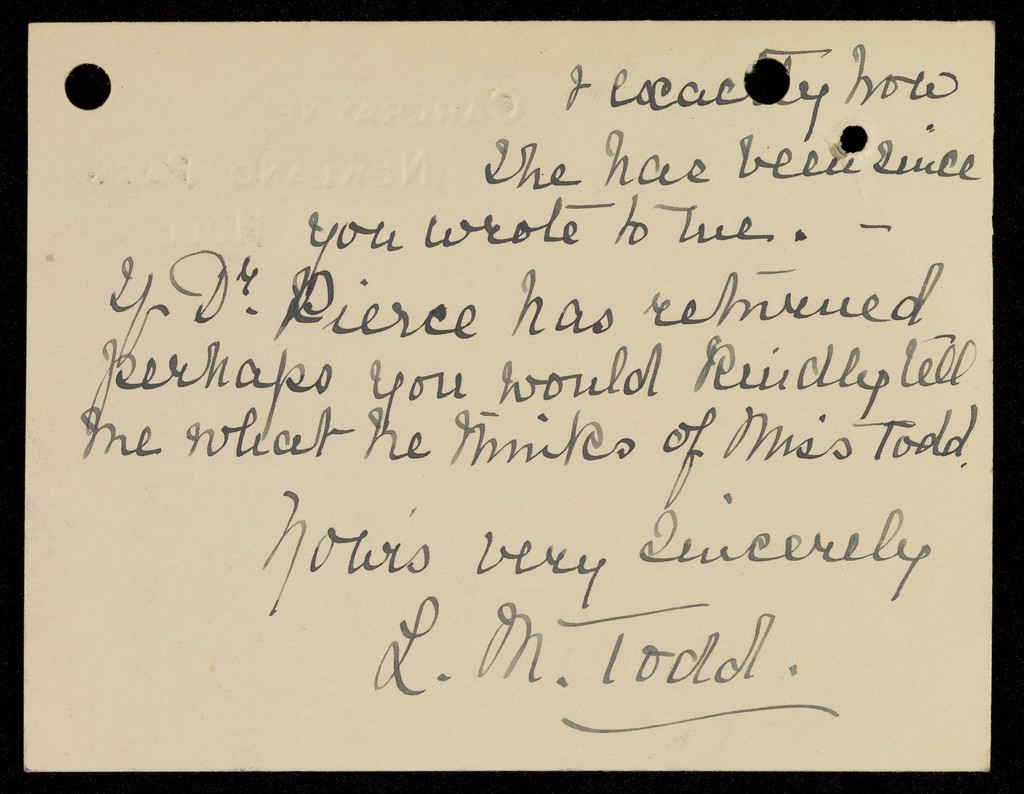 & exactly how
she has been since
you wrote to me. —
If Dr. Pierce has returned
perhaps you would kindly tell
me what he thinks of Miss Todd.
Yours very sincerely
L. M. Todd.